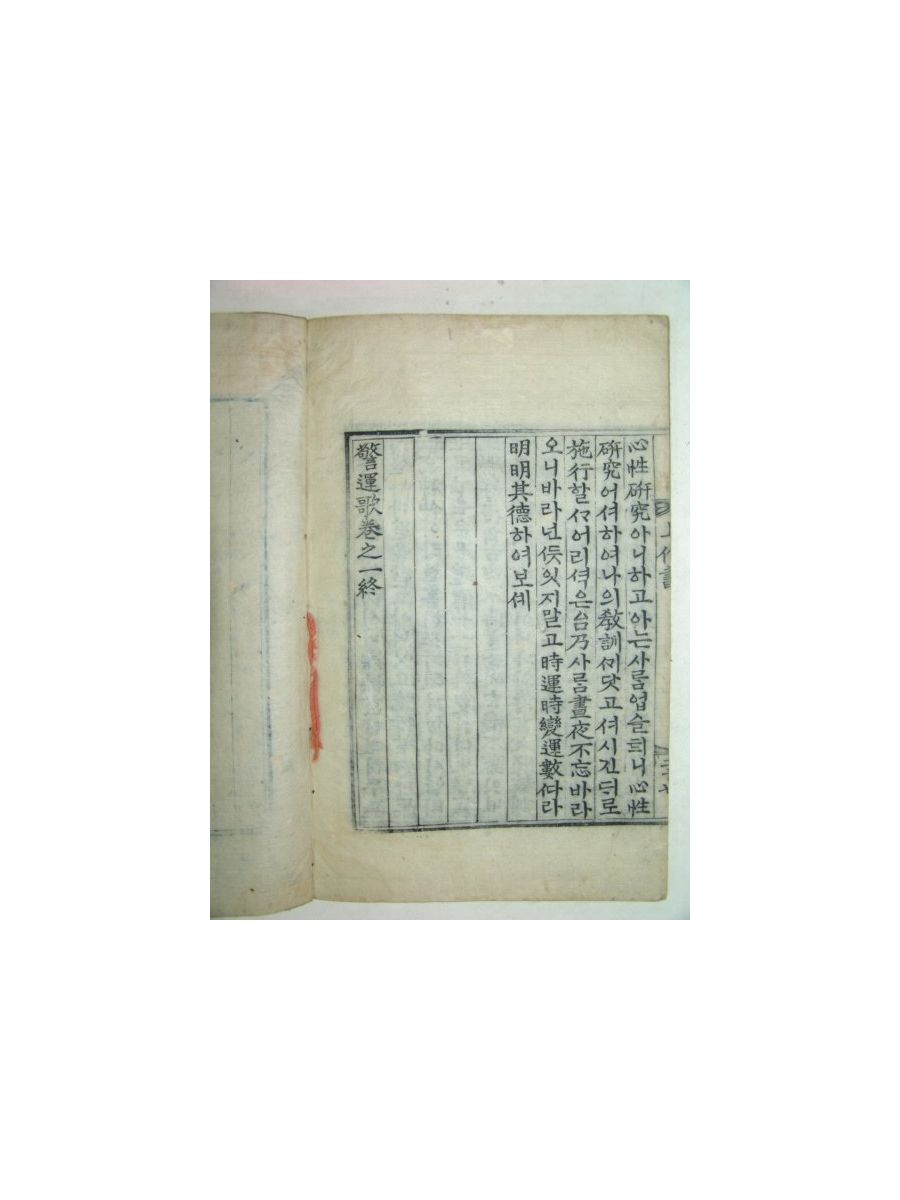 心性硏究아니하고아는사람업슬희니心性
硏究어셔하여나의敎訓씨닷고셔시긴뒤로
施行할쓰어리셕은台乃사람晝夜不忘바라
오니바라넌듯잇지말고時運時變運數따라
明明其德하여보셰
警運歌卷之一終